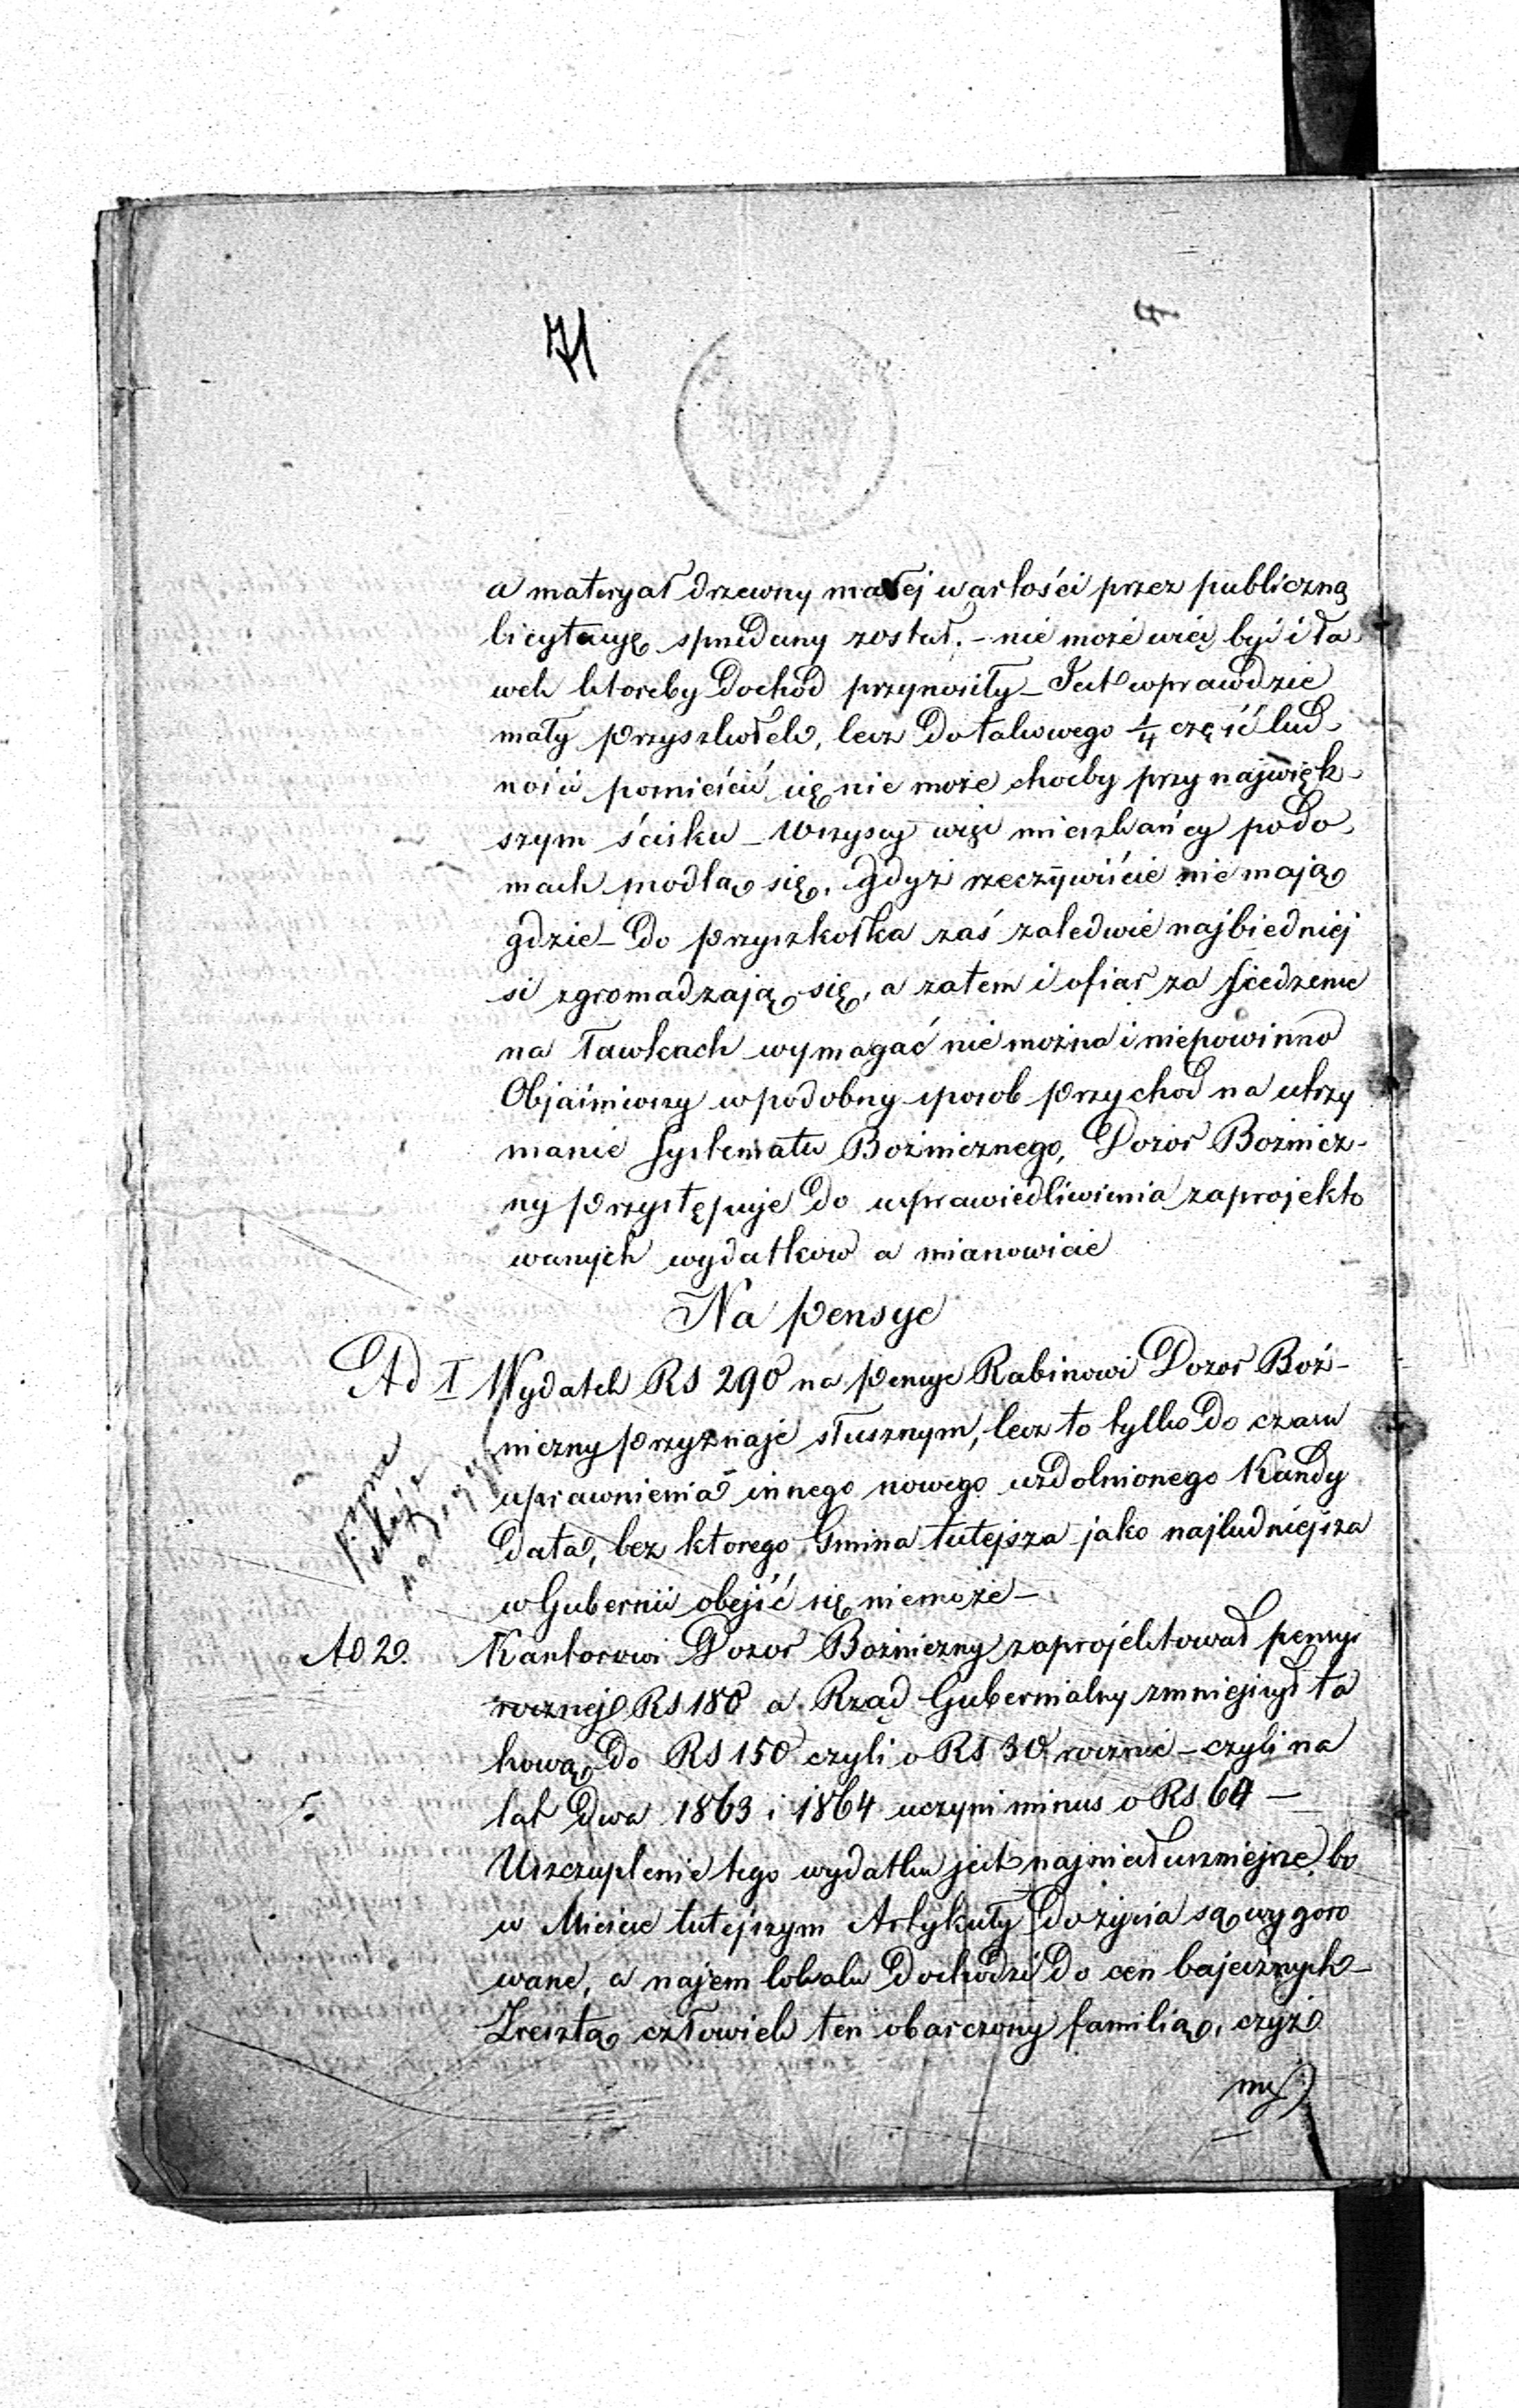 71
4
a materyał drzewny małej wartości przez publiczną
licytacyę sprzedany został. – nie może więc być i ła
wek któreby dochód przynosiły – Jest wprawdzie
mały przyszkołek, lecz do takowego 1/4 część lud-
ności pomieścić się nie może choćby przy najwięk-
szym ścisku – Wszyscy więc mieszkańcy po do-
mach modlą się, gdyż rzeczywiście nie mają
gdzie – do przyszkołka zaś zaledwie najbiedniej
si zgromadzają się, a zatem i ofiar za siedzenie
na ławkach wymagać nie można i niepowinno
Objaśniwszy w podobny sposob przychod na utrzy
manie systematu Bożnicznego, Dozór Bożnicz-
ny przystępuje do usprawiedliwienia zaprojekto
wanych wydatkow a mianowicie
Na pensye
Ad I Wydatek RS 290 na pensye Rabinowi Dozor Boż-
niczny przyznaje słusznym, lecz to tylko do czasu
uprawnienia innego nowego uzdolnionego Kandy
data, bez ktorego Gmina tutejsza jako najludniejsza
w Gubernii obejść się niemoże –
Ad 2. Kantorowi Dozor Bożniczny zaprojektował pensyi
rocznej RS 180 a Rząd Gubernialny zmniejszył ta
kową do RS 150 czyli o RS 30 rocznie – czyli na
lat dwa 1863 i 1864 uczyni minus o RS 60 –
Uszczuplenie tego wydatku jest najniesłuszniejsze bo
w Mieście tutejszym Artykuły do życia są wygoro
wane, a najem lokalu dochodzi do cen bajecznych –
Zresztą człowiek ten obarczony familią, czyż
my